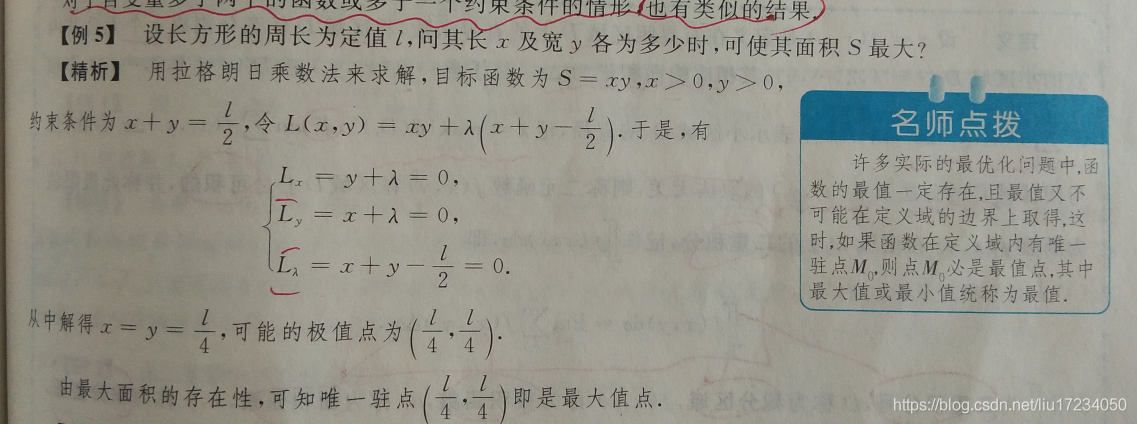 对于自变量多于两个的函数或多于一个约束条件的情形,也有类似的结果.
【例 5】 设长方形的周长为定值 l,问其长 x 及宽 y 各为多少时,可使其面积 S 最大?
【精析】 用拉格朗日乘数法来求解,目标函数为 S = xy, x > 0, y > 0,
约束条件为 x + y = l/2, 令 L(x, y) = xy + λ(x + y − l/2). 于是,有
L_x = y + λ = 0,
L_y = x + λ = 0,
L_λ = x + y − l/2 = 0.
从中解得 x = y = l/4, 可能的极值点为(l/4, l/4).
由最大面积的存在性,可知唯一驻点(l/4, l/4)即是最大值点.
名师点拨
许多实际的最优化问题中,函
数的最值一定存在,且最值又不
可能在定义域的边界上取得,这
时,如果函数在定义域内有唯一
驻点M₀,则点M₀必是最值点,其中
最大值或最小值统称为最值.
https://blog.csdn.net/liu17234050